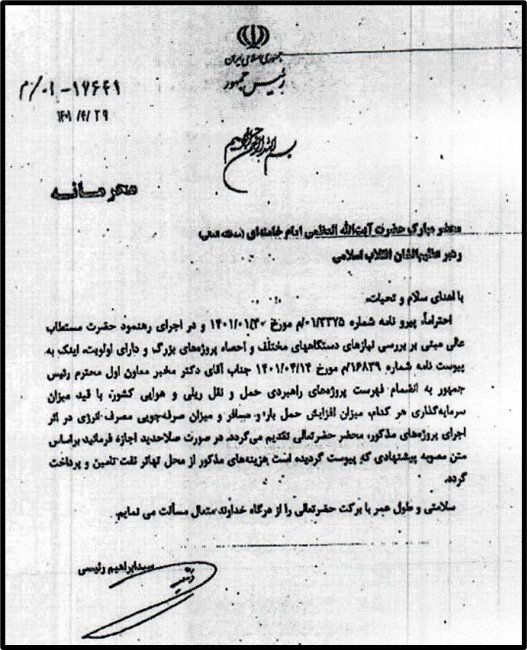 جمهوری اسلامی ایران
رئیس جمهور
۰۱-۱۶۶۴۹/م
۱۴۰۱/۴/۲۹
بسم الله الرحمن الرحیم
محرمانه
محضر مبارک حضرت آیت‌الله العظمی امام خامنه‌ای (مدظله العالی)
رهبر عظیم‌الشان انقلاب اسلامی
با اهدای سلام و تحیات،
احتراماً، پیرو نامه شماره ۰۱/۳۳۷۵/م مورخ ۱۴۰۱/۰۱/۳۰ و در اجرای رهنمود حضرت مستطاب
عالی مبنی بر بررسی نیازهای دستگاههای مختلف و احصاء پروژه‌های بزرگ و دارای اولویت، اینک به
پیوست نامه شماره ۱۶۸۳۹/م مورخ ۱۴۰۱/۰۴/۱۴ جناب آقای دکتر مخبر معاون اول محترم رئیس
جمهور به انضمام فهرست پروژه‌های راهبردی حمل و نقل ریلی و هوایی کشور، با قید میزان
سرمایه‌گذاری هر کدام، میزان افزایش حمل بار و مسافر و میزان صرفه‌جویی مصرف انرژی در اثر
اجرای پروژه‌های مذکور، محضر حضرتعالی تقدیم می‌گردد. در صورت صلاحدید اجازه فرمائید براساس
متن مصوبه پیشنهادی که پیوست گردیده است هزینه‌های مذکور از محل تهاتر نفت تامین و پرداخت
گردد.
سلامتی و طول عمر با برکت حضرتعالی را از درگاه خداوند متعال مسألت می نمایم.
سیدابراهیم رئیسی